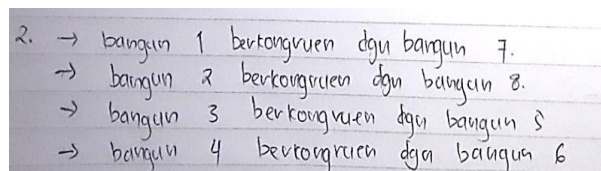 2. → bangun 1 berkongruen dgn bangun 7.
→ bangun 2 berkongruen dgn bangun 8.
→ bangun 3 berkongruen dgn bangun 5
→ bangun 4 berkongruen dgn bangun 6